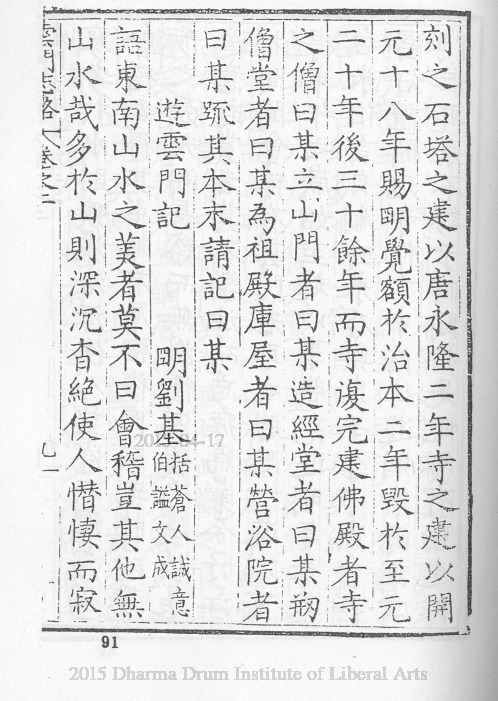 刻之石塔之建以唐永隆二年寺之建以開
元十八年賜明覺額於治本二年毀於至元
二十年後三十餘年而寺復完建佛殿者寺
之僧曰某立山門者曰某造經堂者曰某剏
僧堂者曰某為祖殿庫屋者曰某營浴院者
曰某䟽其本末請記曰某
遊雲門記 明劉基括蒼人誠意
伯謚文成
語東南山水之美者莫不曰會稽豈其他無
山水哉多於山則深沉杳絶使人憯悽而寂
雲門志略 卷之二
九一
91
2015 Dharma Drum Institute of Liberal Arts